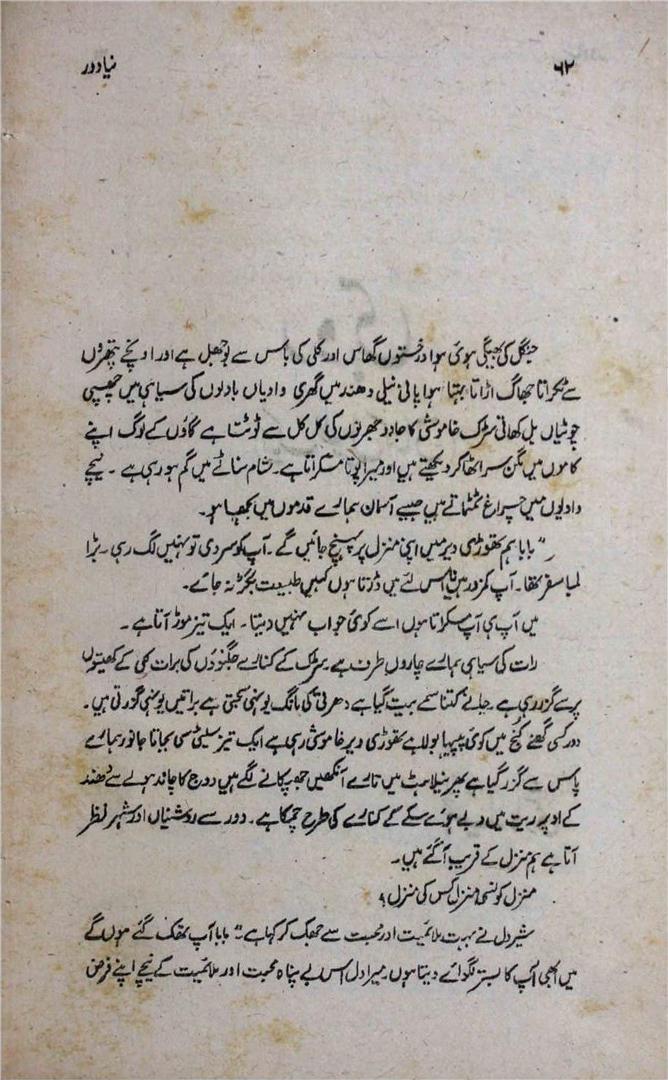 ۶۲
نیا دور
جنگل کی بھیگی ہوئی ہوا درختوں گھاس اور کلی کی باس سے بوجھل ہے اور اونچے پتھروں
سے ٹکراتا جھاگ اڑاتا بہتا ہوا پانی نیلی دھند میں گھری وادیاں بادلوں کی سیاہی میں چھپی
چوٹیاں بل کھاتی سڑک خاموشی کا جادو جھرنوں کی کل کل سے ٹوٹتا ہے گاؤں کے لوگ اپنے
کاموں میں مگن سر اٹھا کر دیکھتے ہیں اور میرا پوتا مسکراتا ہے۔ شام سناٹے میں گم ہو رہی ہے۔ نیچے
وادیوں میں چراغ ٹمٹماتے ہیں جیسے آسمان ہمارے قدموں میں بچھا ہو۔
"بابا ہم تھوڑی دیر میں اپنی منزل پر پہنچ جائیں گے۔ آپ کو سردی تو نہیں لگ رہی۔ بڑا
لمبا سفر تھا۔ آپ کمزور ہیں اس لئے میں ڈرتا ہوں کہیں طبیعت بگڑ نہ جائے۔
میں آپ ہی آپ مسکراتا ہوں اسے کوئی جواب نہیں دیتا۔ ایک تیز موڑ آتا ہے۔
رات کی سیاہی ہمارے چاروں طرف ہے سڑک کے کنارے جگنوؤں کی برات مکی کے کھیتوں
پر سے گزر رہی ہے۔ جانے کتنا سمے بیت گیا ہے دھرتی کی مانگ یونہی سجتی ہے براتیں یونہی گزرتی ہیں۔
دور کسی گھنے کنج میں کوئی پپیہا بولا ہے تھوڑی دیر خاموشی رہی ہے ایک تیز سیٹی سی بجاتا جانور ہمارے
پاس سے گزر گیا ہے پھر نیلاہٹ میں تارے آنکھیں جھپکانے لگے ہیں دوج کا چاند ہولے سے دھند
کے اوپر ریت میں دبے ہوئے سکے کے کنارے کی طرح چمکا ہے۔ دور سے روشنیاں اور شہر نظر
آتا ہے ہم منزل کے قریب آ گئے ہیں۔
منزل کونسی منزل کس کی منزل؟
شیر دل نے بہت ملائمیت اور محبت سے جھک کر کہا ہے "بابا آپ تھک گئے ہوں گے
میں ابھی آپ کا بستر لگوائے دیتا ہوں۔ میرا دل اس بے پناہ محبت اور ملائمیت کے نیچے اپنے فرض